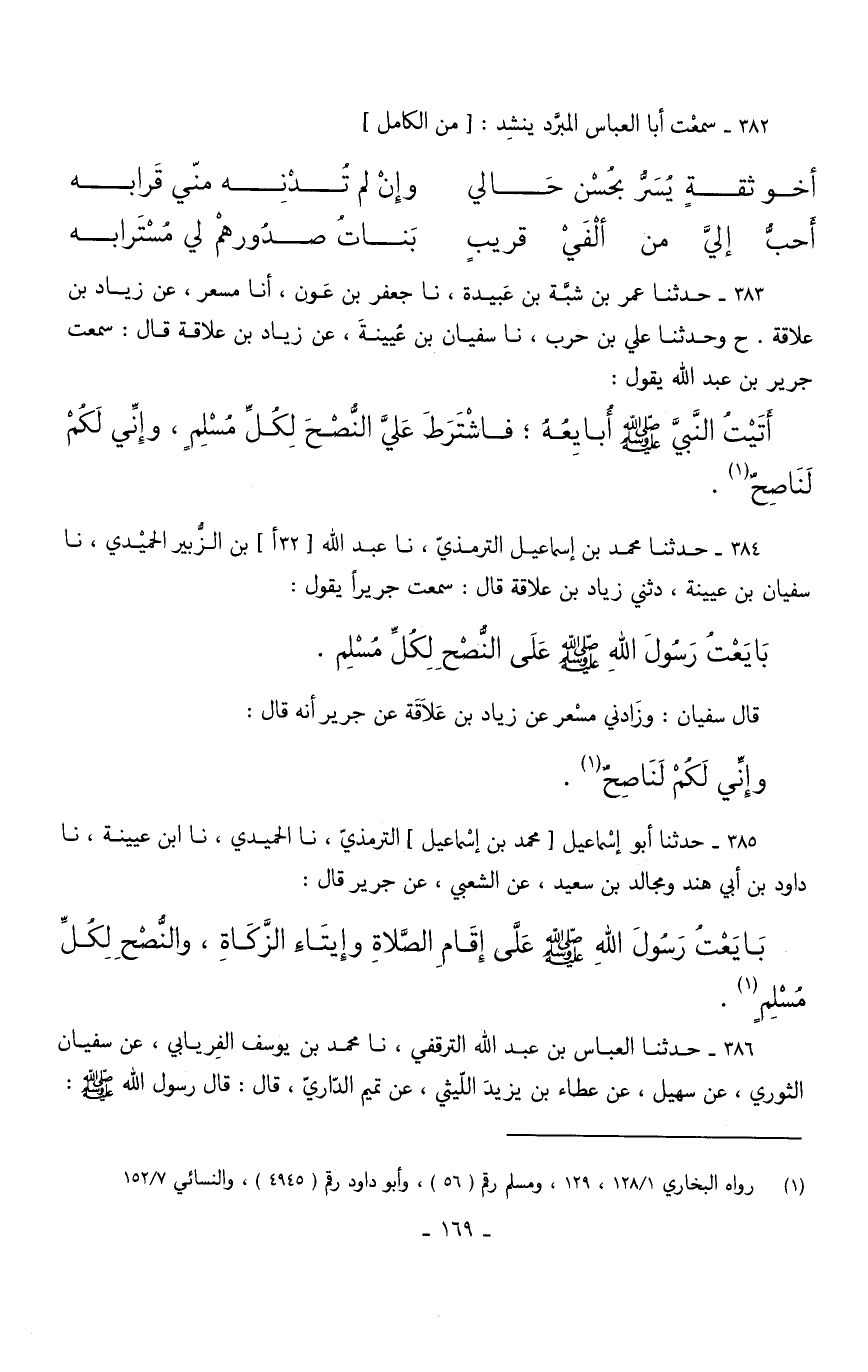 ٣٨٢ ـ سمعْت أبا العباس المبرَّد ينشِد : [ من الكامل ]
أخـو ثقـةٍ يُسَرُّ بحُسْن حَـالي وإنْ لم تُـدْنِـه منّي قَرابـه
أَحبُّ إليَّ من أَلْفَيْ قريبٍ بَنـاتُ صـدُورهمْ لي مُسْتَرابـه
٣٨٣ ـ حـدثنـا عمر بن شبَّة بن عَبيدة ، نـا جعفر بن عَون ، أنـا مسعر ، عن زيـاد بن
علاقة . ح وحـدثنـا علي بن حرب ، نـا سفيان بن عُيينـةَ ، عن زيـاد بن علاقـة قـال : سمعت
جرير بن عبد الله يقول :
أَتَيْتُ النَّبيَّ ﷺ أُبـايِعُـهُ ؛ فـاشْتَرَطَ عَلَيَّ النُّصْـحَ لِكُـلِّ مُسْلِمٍ ، وإنِّي لَكُمْ
لَنَاصِحٌ(١) .
٣٨٤ ـ حـدثنـا محمـد بن إسماعيـل الترمـذيّ ، نـا عبـد الله [ ٣٢أ ] بن الـزُّبير الحمَيْدي ، نـا
سفيان بن عيينة ، دثني زياد بن علاقة قال : سمعت جريراً يقول :
بَايَعْتُ رَسُولَ اللهِ ﷺ عَلَى النُّصْحِ لِكُلِّ مُسْلِمِ .
قال سفيان : وزَادني مسْعر عن زياد بن عَلاَقَة عن جرير أنه قال :
وإنِّي لَكُمْ لَنَاصِحٌ(١) .
٣٨٥ ـ حدثنا أبو إسْماعيل [ محمد بن إسْماعيل ] الترمذيّ ، نـا الحميـدي ، نـا ابن عيينـة ، نـا
داود بن أبي هند ومجالد بن سعيد ، عن الشعبي ، عن جرير قال :
بَـايَعْتُ رَسُولَ اللهِ ﷺ عَلَى إقَامِ الصَّلاةِ وإيتَـاءِ الزَّكَـاةِ ، والنُّصْحِ لِكُـلِّ
مُسْلِمٍ(١) .
٣٨٦ ـ حـدثنـا العبـاس بن عبـد الله الترقفي ، نـا محمـد بن يوسف الفِريابي ، عن سفيـان
الثوري ، عن سهيل ، عن عطاء بن يزيدَ اللّيثي ، عن تميم الدّاريّ ، قال : قال رسول الله ﷺ :
(١) رواه البخاري ١٢٨/١ ، ١٢٩ ، ومسلم رقم ( ٥٦ ) ، وأبو داود رقم ( ٤٩٤٥ ) ، والنسائي ١٥٢/٧
ـ ١٦٩ ـ